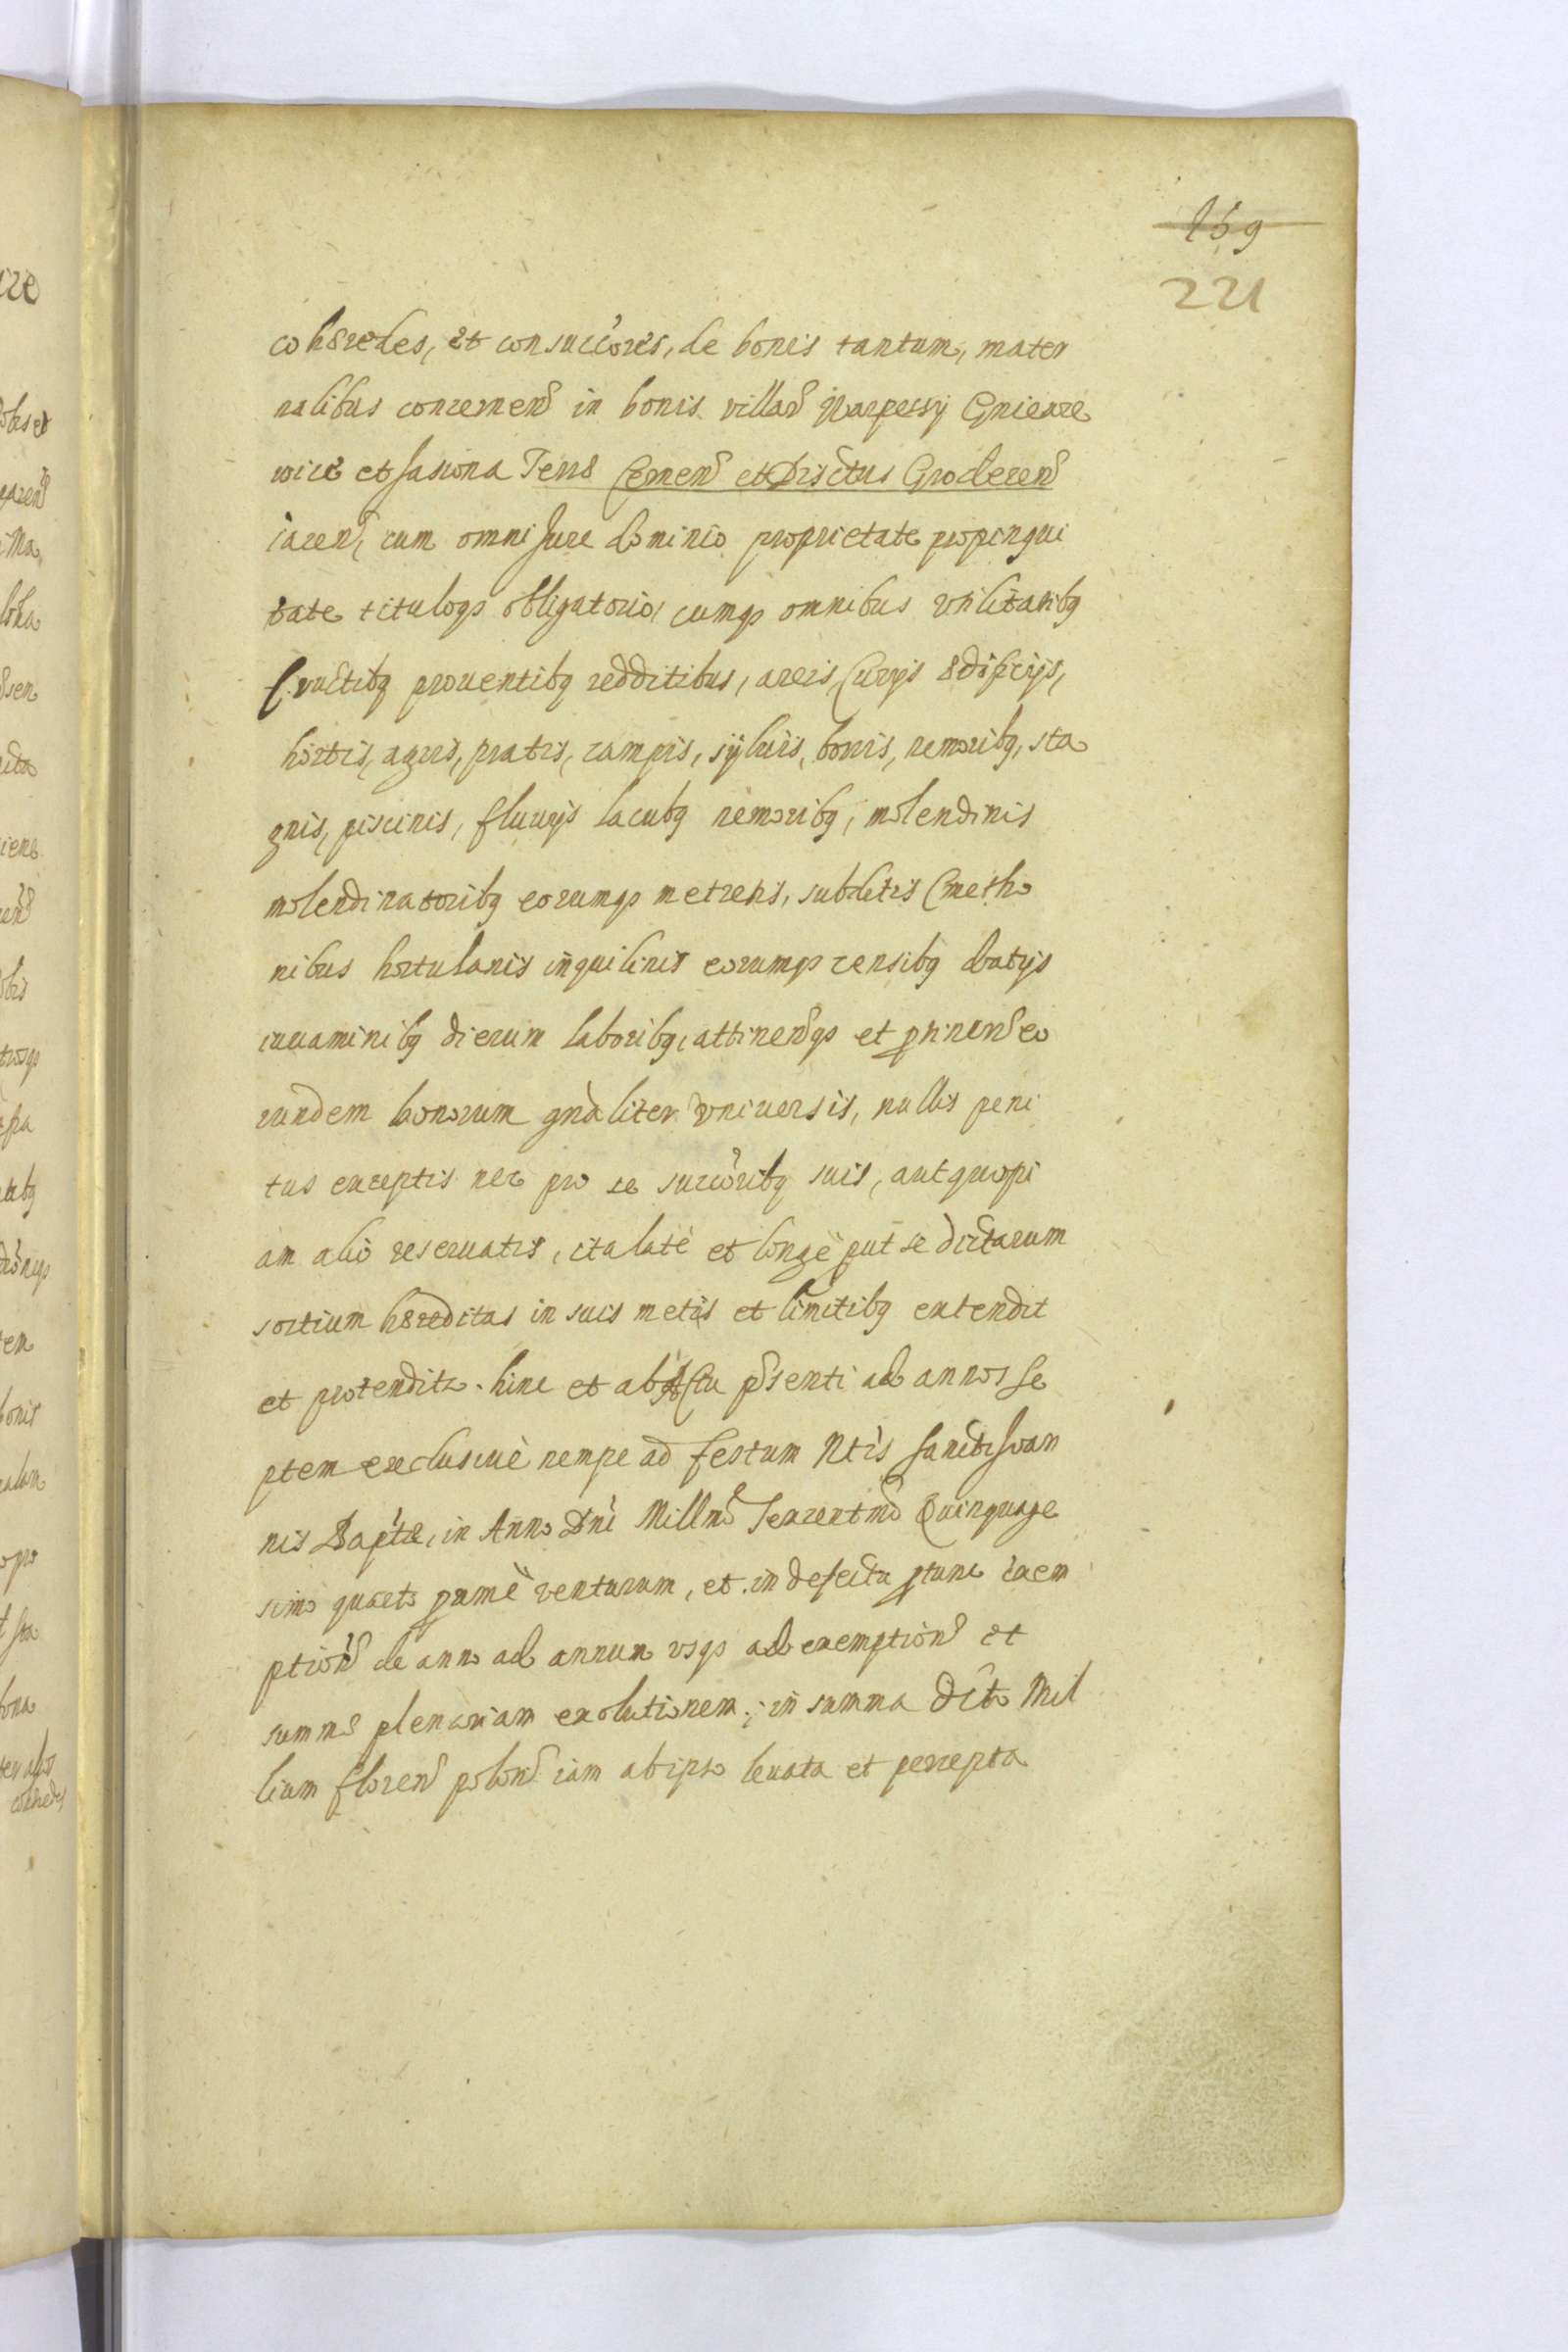 259
221
cohæredes, et consuccores, de bonis tantum, mater
nalibus concernen in bonis villar Karpessy Gniewze
wice et Jasiona Terræ Cernen et Drictus Grodecen
iacen, cum omni Jure dominio proprietate propinqui
tate tituloqȝ obligatorio, cumqȝ omnibus vtilitatibȝ
fructibȝ prouentibȝ redditibus, areis, Curijs ædificijs,
hortis, agris, pratis, campis, syluis, borris, nemoribȝ, sta
gnis, piscinis, fluuijs lacubȝ nemoribȝ, molendinis
molendinatoribȝ eorumqȝ metretis, subditis Cmetho
nibus hortulanis inquilinis eorumqȝ censibȝ datijs
iuuaminibȝ dierum laboribȝ, attinenqȝ et ptinen eo
rundem bonorum gnaliter vniuersis, nullis peni
tus exceptis nec pro se succoribȝ suis, aut quopi
am alio reseruatis, ita late et longe put se dictarum
sortium hæreditas in suis metis et limitibȝ extendit
et protendit. hinc et ab Actu psenti ad annos se
ptem exclusiue nempe ad festum Ntis Sancti Joan
nis Baptæ, in Anno Dni Millmo Sexcentmo Quinquage
simo quarto pxme venturum, et in defectu ptunc exem
ption de anno ad annum vsqȝ ad exemption et
summæ plenariam exolutionem; in summa Octo Mil
lium floren polon iam ab ipso leuata et percepta